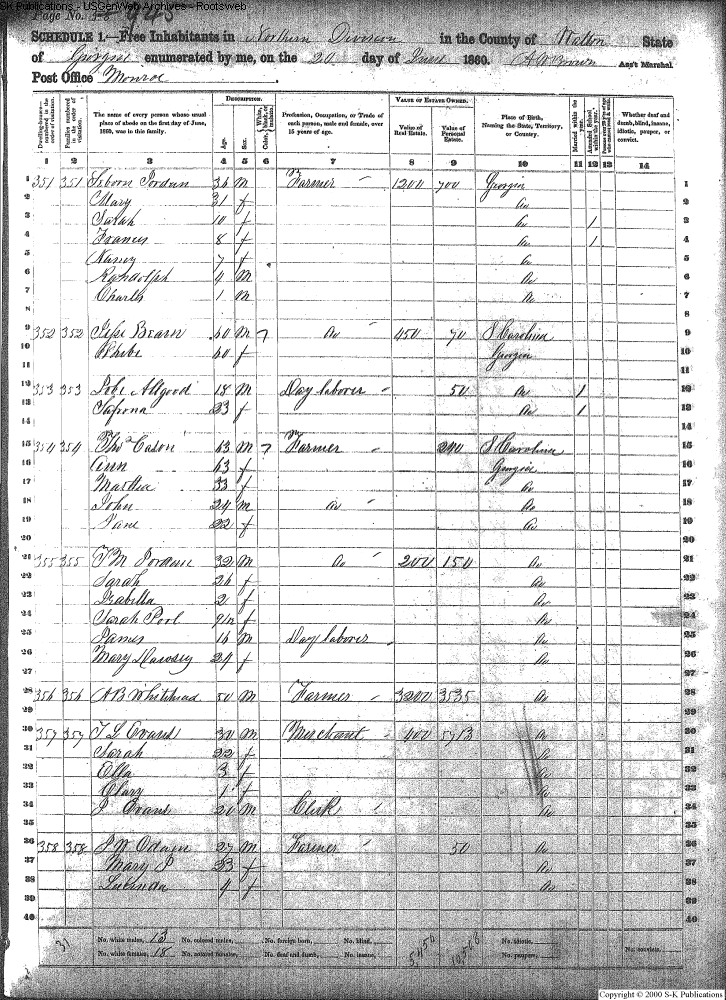 S-K Publications - USGenWeb Archives - Rootsweb
Page No. 945
SCHEDULE 1.—Free Inhabitants in Northern Division in the County of Walton State
of Georgia enumerated by me, on the 20 day of June 1860. A W Brown Ass't Marshal.
Post Office Monroe.
Dwelling-houses—numbered in the order of visitation.
Families numbered in the order of visitation.
The name of every person whose usual place of abode on the first day of June, 1860, was in this family.
DESCRIPTION.
Age.
Sex.
Color,
Profession, Occupation, or Trade of each person, male and female, over 15 years of age.
VALUE OF ESTATE OWNED.
Value of Real Estate.
Value of Personal Estate.
Place of Birth, Naming the State, Territory, or Country.
Married within the year.
Attended School within the year.
Whether deaf and dumb, blind, insane, idiotic, pauper, or convict.
1 2 3 4 5 6 7 8 9 10 11 12 13 14
1 351 351 Jordan 36 M Farmer 1200 700 Georgia 1
2 Mary 31 f Do 2
3 Sarah 10 f Do 1 3
4 Frances 8 f Do 1 4
5 Nancy 7 f Do 5
6 Randolph 4 M Do 6
7 Charles 1 M Do 7
8 8
9 352 352 Jesse 60 M 7 Do 450 70 S Carolina 9
10 60 f Georgia 10
11 11
12 353 353 Allgood 18 M Day laborer 50 Do 1 12
13 23 f Do 1 13
14 14
15 354 354 Thos Cason 63 M 7 Farmer 240 S Carolina 15
16 Ann 63 f Georgia 16
17 Martha 33 f Do 17
18 John 24 M Do Do 18
19 Jane 22 f Do 19
20 20
21 355 355 J M Jordan 32 M Do 200 150 Do 21
22 Sarah 26 f Do 22
23 Izabella 2 f Do 23
24 Sarah Pool f Do 24
25 James 16 M Day laborer Do 25
26 Mary 24 f Do 26
27 27
28 356 356 A B Whitehead 50 M Farmer 3200 3535 Do 28
29 29
30 357 357 Evans 30 M Merchant 400 5713 Do 30
31 Sarah 22 f Do 31
32 Ella 3 f Do 32
33 Clary 1 f Do 33
34 J Evans 20 M Clerk Do 34
35
36 358 358 J W Odum 27 M Farmer 50 Do 36
37 Mary J 23 f Do 37
38 Lucinda 4 f Do 38
39 39
40 40
No. white males, 13 No. colored males, No. foreign born, No. blind, No. idiotic,
No. white females, 18 No. colored females, No. deaf and dumb, No. insane, No. paupers, No. convicts,
31 5450
Copyright © 2000 S-K Publications